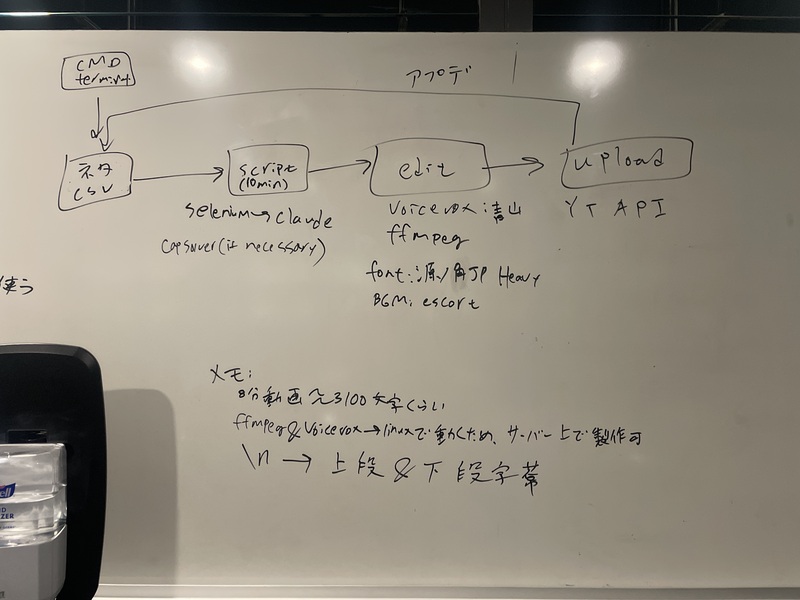 CMD
terminal
アプデ
ネタ
CSV
script
(10min)
edit
upload
selenium→claude
capsolver(if necessary)
Voicevox:青山
ffmpeg
font:源ノ角JP Heavy
BGM: escort
YT API
使う
メモ:
8分動画≒3100文字くらい
ffmpeg&Voicevox→linuxで動くため、サーバー上で製作可
\n→上段&下段字幕